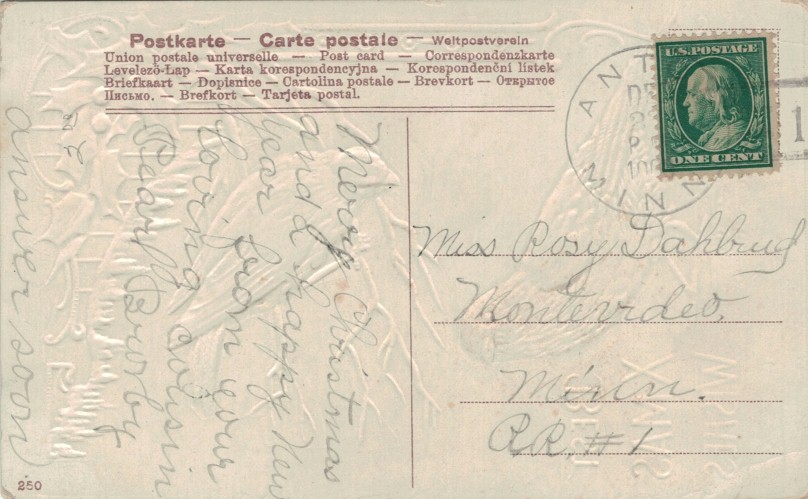 Postkarte — Carte postale — Weltpostverein
Union postale universelle — Post card — Correspondenzkarte
Levelező-Lap — Karta korespondencyjna — Korespondenční lístek
Briefkaart — Dopisnice — Cartolina postale — Brevkort — Открытое
письмо. — Brefkort — Tarjeta postal.
U.S. POSTAGE
ONE CENT
ANT
DE
2
P
100
MINN
1
Merry Christmas
and a happy New
year from your
loving cousin
Pearl Broby
answer soon
Miss Rosy Dahbrud
Montevideo
Minn.
R.R. #1
BEST
XMAS
WISHES
250